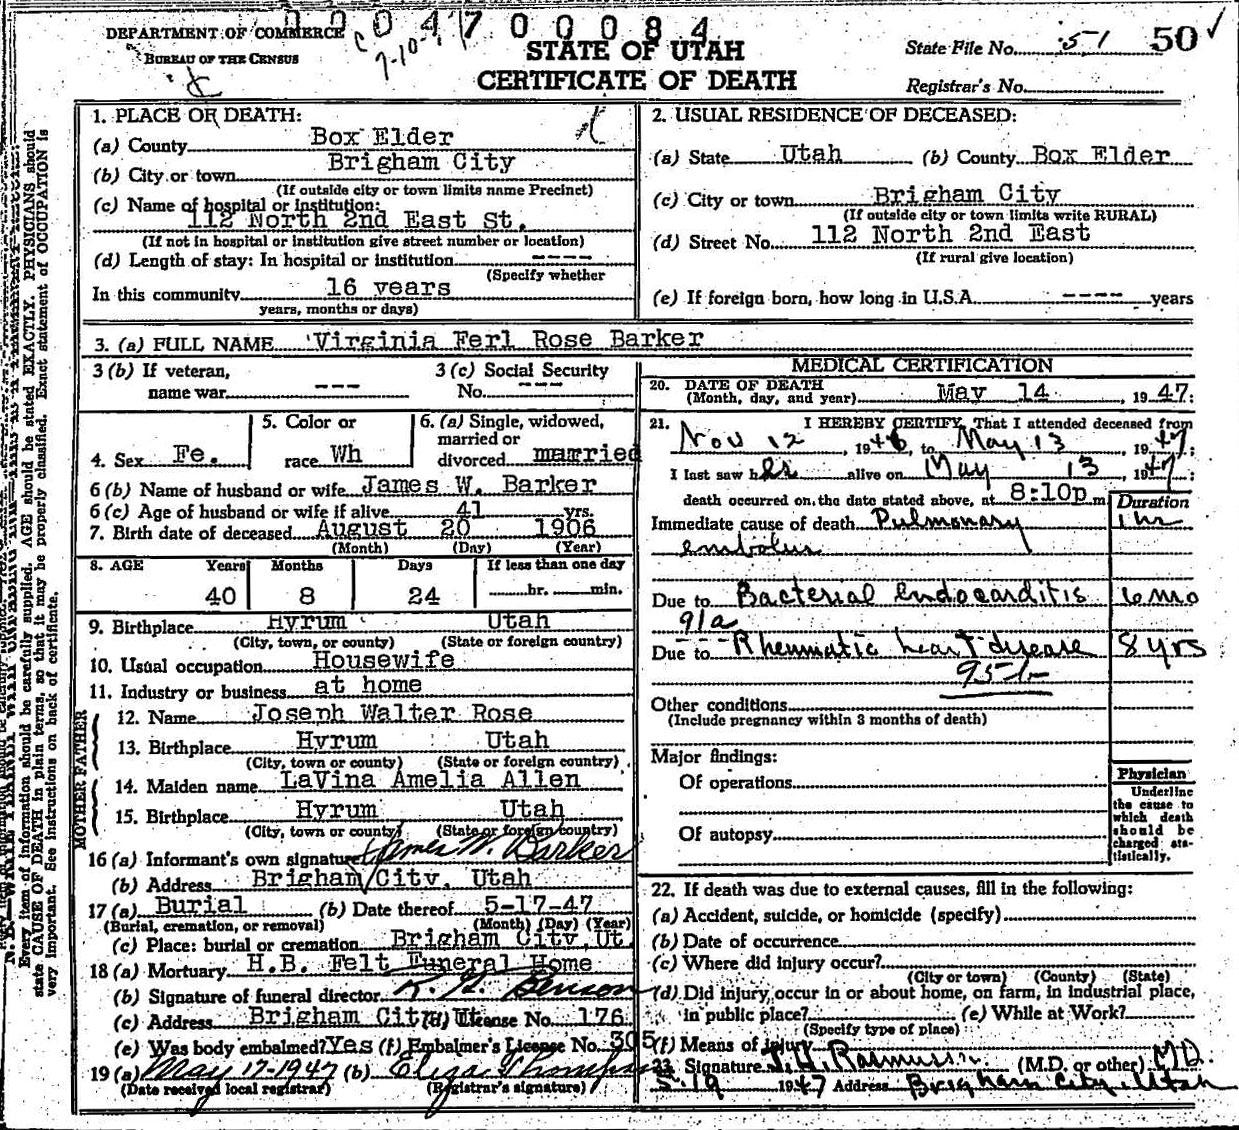 0004700084
DEPARTMENT OF COMMERCE
BUREAU OF THE CENSUS
STATE OF UTAH
CERTIFICATE OF DEATH
State File No. 51 50 ✓
Registrar's No.
1. PLACE OF DEATH:
(a) County Box Elder
(b) City or town Brigham City
(If outside city or town limits name Precinct)
(c) Name of hospital or institution:
112 North 2nd East St.
(If not in hospital or institution give street number or location)
(d) Length of stay: In hospital or institution ----
(Specify whether
In this community 16 years
years, months or days)
2. USUAL RESIDENCE OF DECEASED:
(a) State Utah (b) County Box Elder
(c) City or town Brigham City
(If outside city or town limits write RURAL)
(d) Street No. 112 North 2nd East
(If rural give location)
(e) If foreign born, how long in U.S.A. ---- years
3. (a) FULL NAME Virginia Ferl Rose Barker
3 (b) If veteran,
name war ---
3 (c) Social Security
No. ---
4. Sex Fe.
5. Color or
race Wh
6. (a) Single, widowed,
married or
divorced married
6 (b) Name of husband or wife James W. Barker
6 (c) Age of husband or wife if alive 41 yrs.
7. Birth date of deceased August 20 1906
(Month) (Day) (Year)
8. AGE Years Months Days If less than one day
40 8 24 hr. min.
9. Birthplace Hyrum Utah
(City, town, or county) (State or foreign country)
10. Usual occupation Housewife
11. Industry or business at home
FATHER
12. Name Joseph Walter Rose
13. Birthplace Hyrum Utah
(City, town or county) (State or foreign country)
MOTHER
14. Maiden name LaVina Amelia Allen
15. Birthplace Hyrum Utah
(City, town or county) (State or foreign country)
16 (a) Informant's own signature James W. Barker
(b) Address Brigham City, Utah
17 (a) Burial (b) Date thereof 5-17-47
(Burial, cremation, or removal) (Month) (Day) (Year)
(c) Place: burial or cremation Brigham City, Ut.
18 (a) Mortuary H.B. Felt Funeral Home
(b) Signature of funeral director Benson
(c) Address Brigham City, Ut. (d) License No. 176
(e) Was body embalmed? Yes (f) Embalmer's License No. 305
19 (a) May 17-1947 (b) Eliza Thompson
(Date received local registrar) (Registrar's signature)
MEDICAL CERTIFICATION
20. DATE OF DEATH
(Month, day, and year) May 14, 1947;
21. I HEREBY CERTIFY, That I attended deceased from
Nov 12, 1946, to May 13, 1947;
I last saw her alive on May 13, 1947;
death occurred on the date stated above, at 8:10p m.
Duration
Immediate cause of death Pulmonary 1 hr
embolus
Due to Bacterial endocarditis 6 mo
91a
Due to Rheumatic heart disease 8 yrs
Other conditions
(Include pregnancy within 3 months of death)
Major findings:
Of operations
Of autopsy
Physician
Underline
the cause to
which death
should be
charged sta-
tistically.
22. If death was due to external causes, fill in the following:
(a) Accident, suicide, or homicide (specify)
(b) Date of occurrence
(c) Where did injury occur?
(City or town) (County) (State)
(d) Did injury occur in or about home, on farm, in industrial place,
in public place? (e) While at Work?
(Specify type of place)
(f) Means of injury
23 Signature Rasmussen (M.D. or other) M.D.
5-19 1947 Address Brigham City, Utah
Every item of information should be carefully supplied. AGE should be stated EXACTLY. PHYSICIANS should
state CAUSE OF DEATH in plain terms, so that it may be properly classified. Exact statement of OCCUPATION is
very important. See instructions on back of certificate.